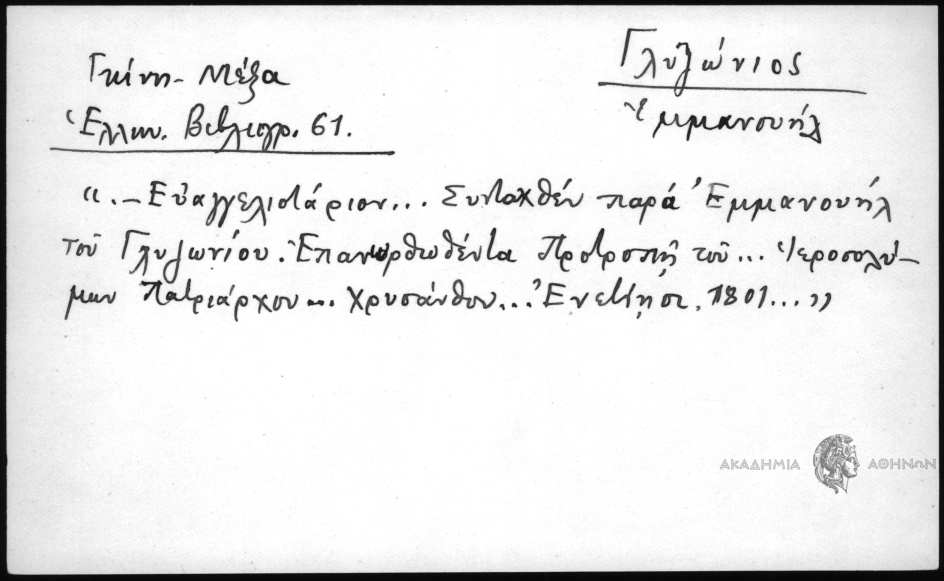 Γκίνη - Μέξα
Ἑλλην. Βιβλιογρ. 61.
Γλυζώνιος
Ἐμμανουήλ
«.– Εὐαγγελιστάριον... Συνταχθέν παρά Ἐμμανουήλ
τοῦ Γλυζωνίου. Ἐπανορθωθέντα προτροπῇ τοῦ... Ἱεροσολύ-
μων Πατριάρχου... Χρυσάνθου... Ἐνετίησι, 1801...»
ΑΚΑΔΗΜΙΑ ΑΘΗΝΩΝ